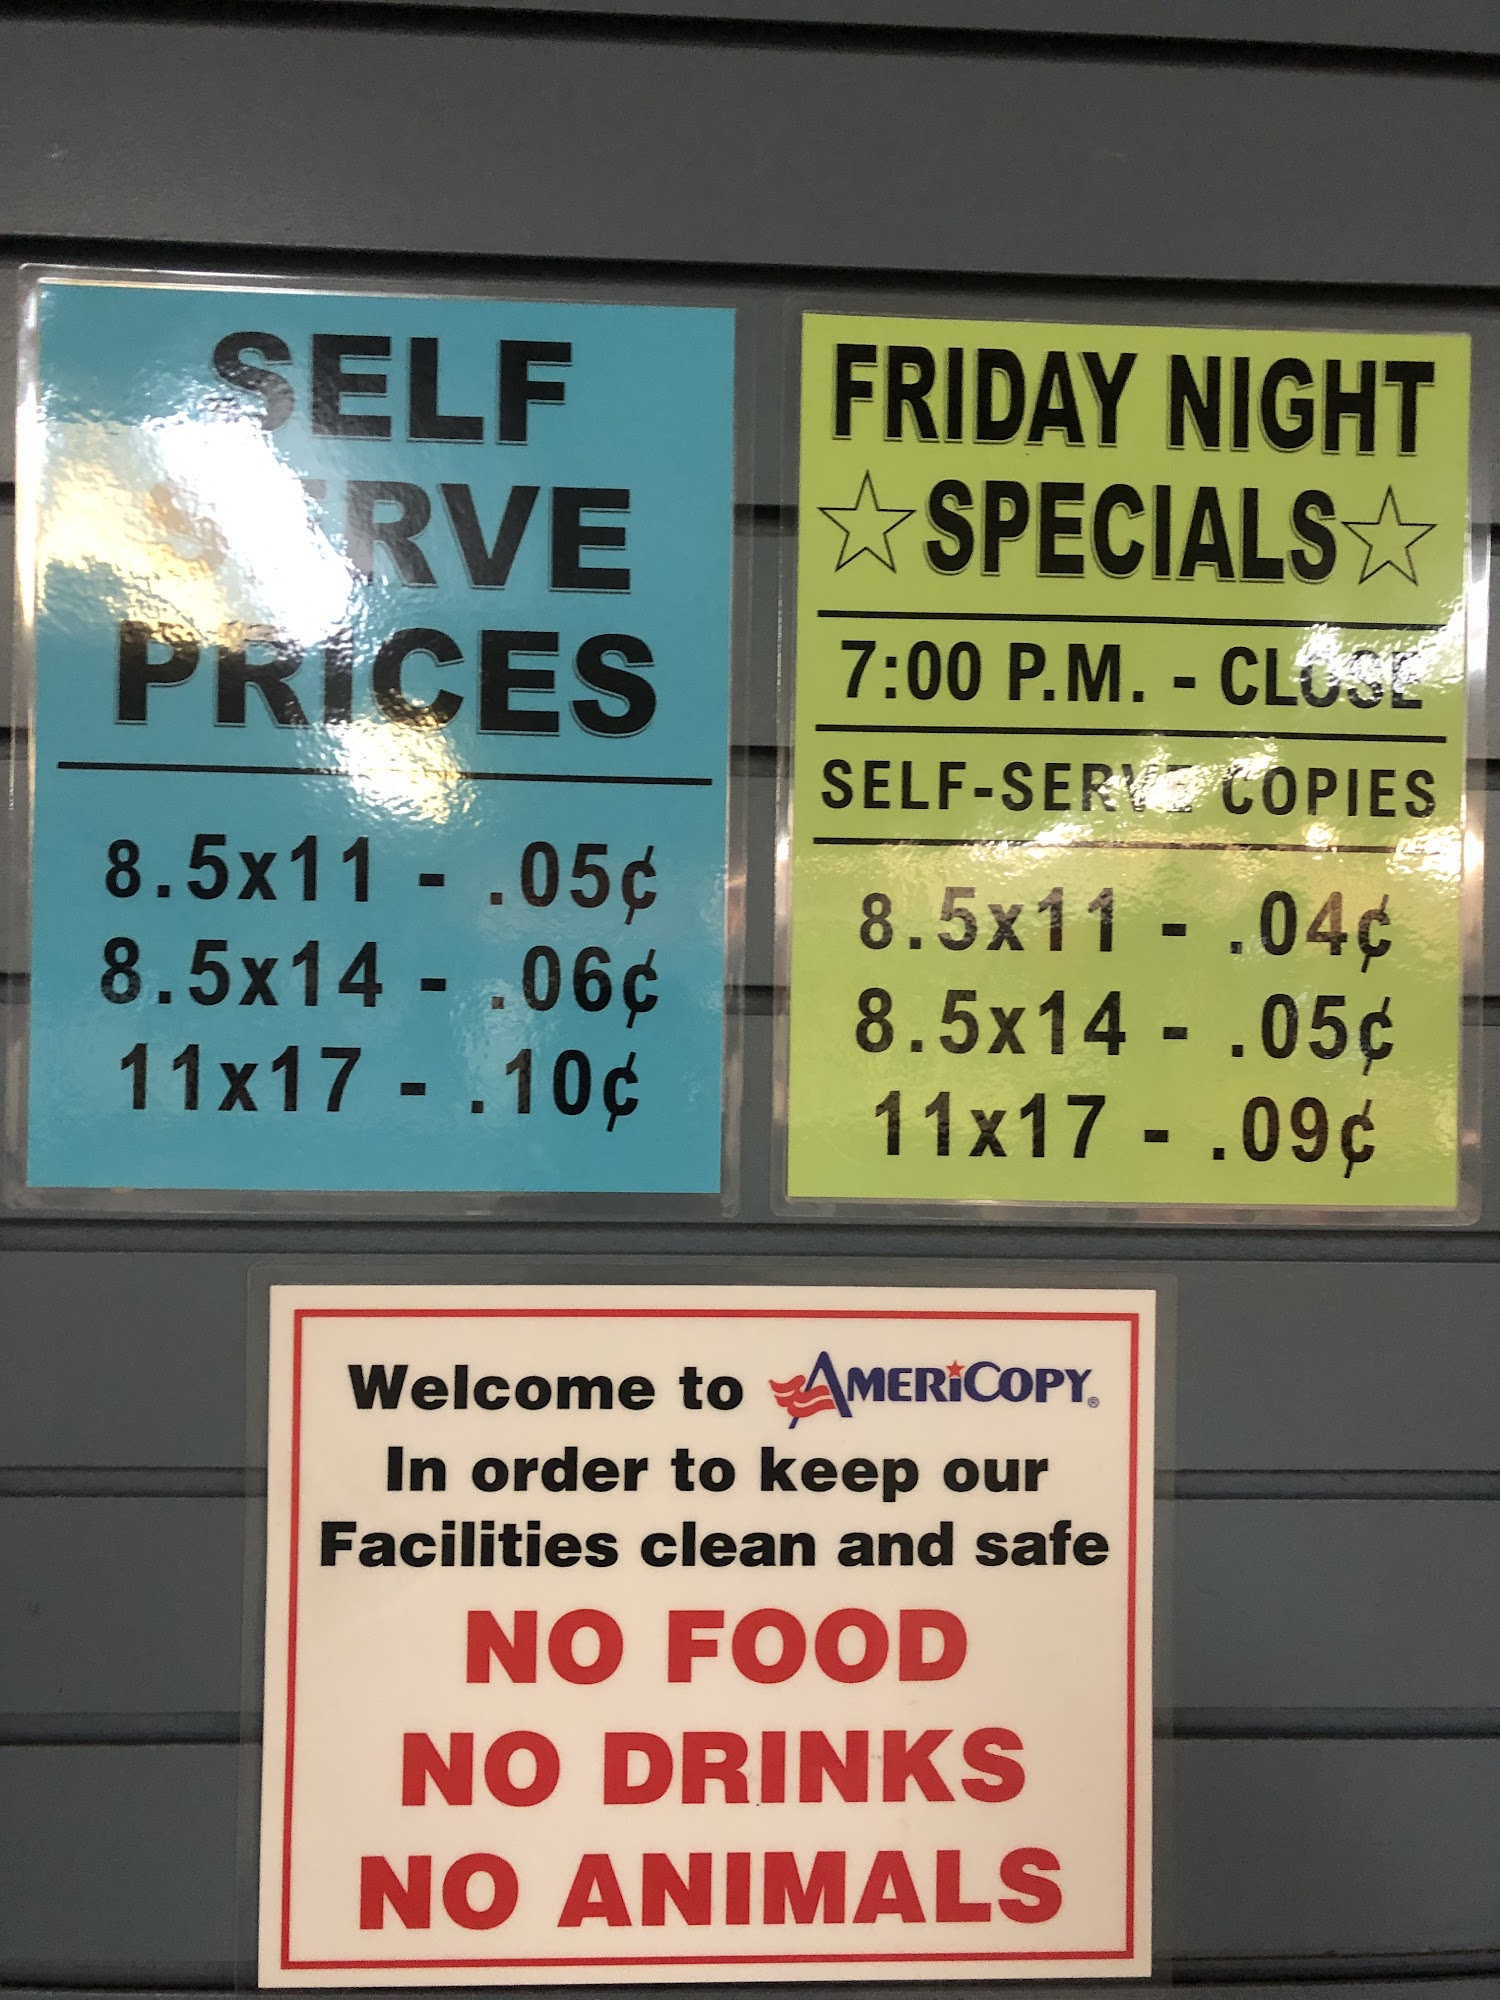 SELF
SERVE
PRICES
8.5x11 - .05¢
8.5x14 - .06¢
11x17 - .10¢
FRIDAY NIGHT
SPECIALS
7:00 P.M. - CLOSE
SELF-SERVE COPIES
8.5x11 - .04¢
8.5x14 - .05¢
11x17 - .09¢
Welcome to AMERiCOPY®
In order to keep our
Facilities clean and safe
NO FOOD
NO DRINKS
NO ANIMALS